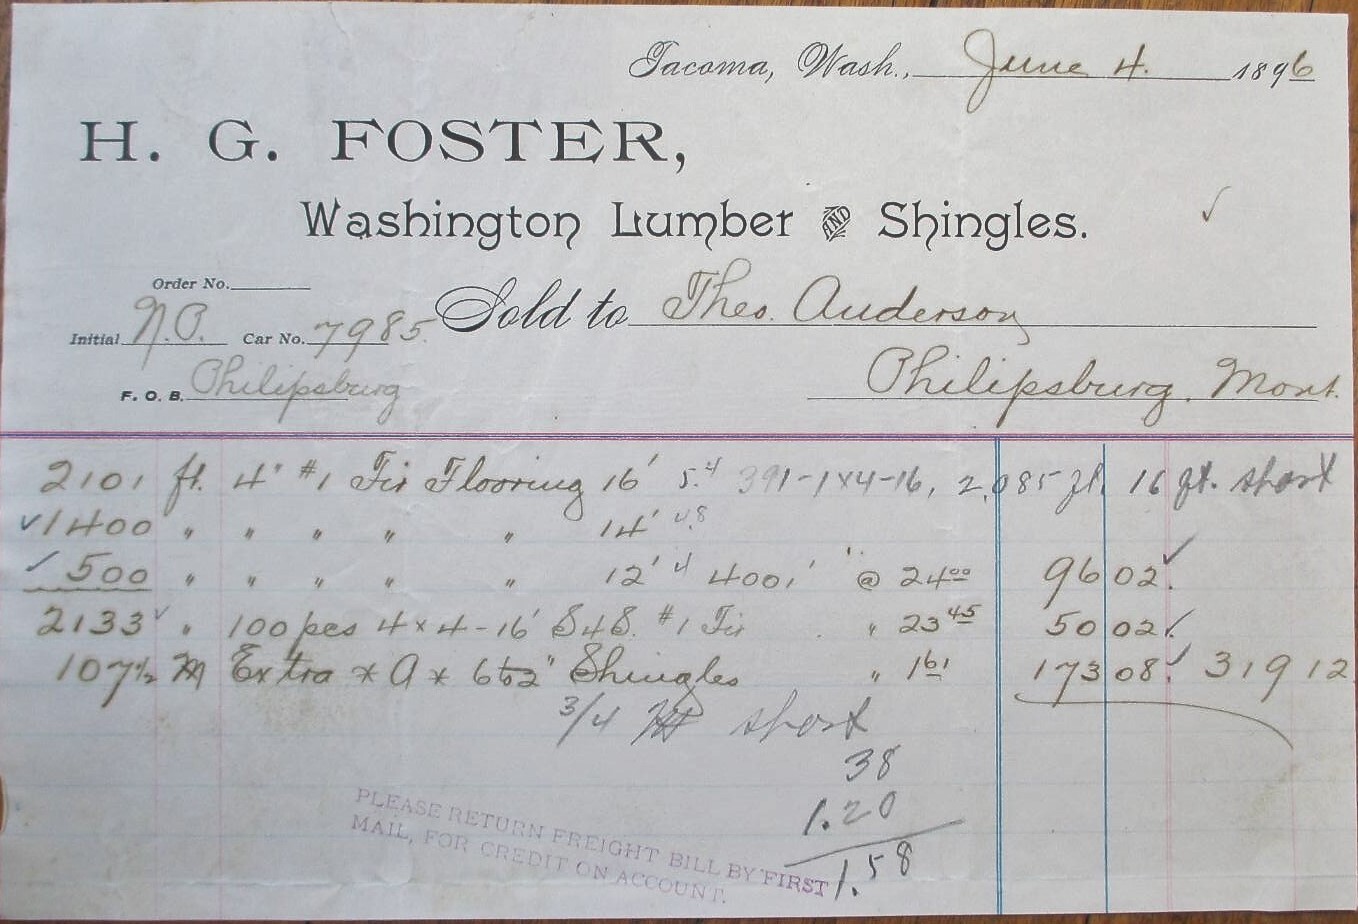 Tacoma, Wash., June 4. 1896
H. G. FOSTER,
Washington Lumber AND Shingles.
Order No.
Sold to Theo. Anderson
Initial N.P. Car No. 7985.
Philipsburg, Mont.
F. O. B. Philipsburg
2101 ft. 4" #1 Fir Flooring 16' 5.4 391-1x4-16, 2,085 ft. 16 ft. short
✓1400 " " " " " 14' 4.8
✓ 500 " " " " " 12' 4 4001' @ 24.00 96 02 ✓
2133 ✓ " 100 pcs 4x4-16' S4S. #1 Fir " 23 45 50 02 ✓
107 1/2 M Extra * A * 6 to 2" Shingles " 1 61 173 08 ✓ 319 12
3/4 M short
38
1.20
1.58
PLEASE RETURN FREIGHT BILL BY FIRST
MAIL, FOR CREDIT ON ACCOUNT.